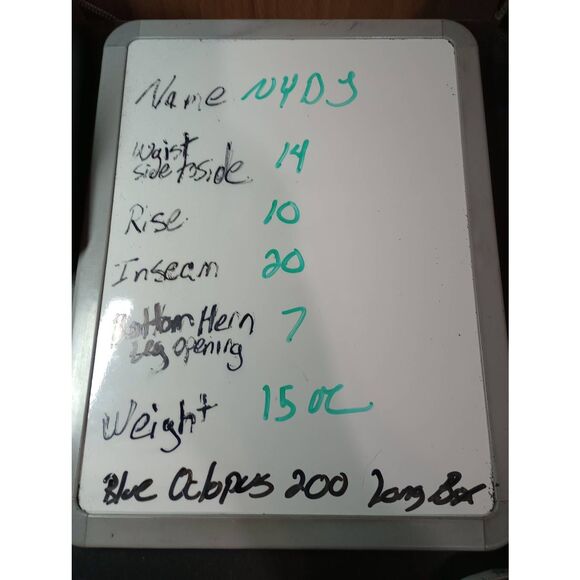 Name NYDJ
Waist 14
side to side
Rise 10
Inseam 20
Bottom Hem 7
Leg opening
Weight 15 oz
Blue Octopus 200 Long Box